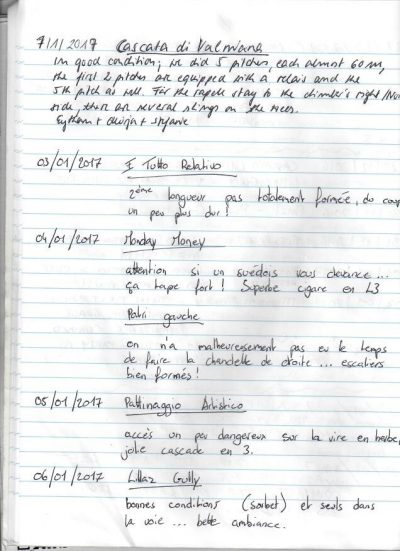 7/1/2017 Cascata di Valmiana
In good condition; we did 5 pitches, each almost 60m,
the first 2 pitches are equipped with a relais and the
5th pitch as well. For the rapell stay to the climber's right
side, there are several slings on the trees.
+ stefanie
03/01/2017 Tutto Relativo
2ème longueur pas totalement formée, du coup
un peu plus dur !
04/01/2017 Monday Money
attention si un suédois vous devance...
ça tape fort ! Superbe cigare en L3
Patri gauche
on n'a malheureusement pas eu le temps
de faire la chandelle de droite... escaliers
bien formés !
05/01/2017 Pattinaggio Artistico
accès un peu dangereux sur la vire en herbe,
jolie cascade en 3.
06/01/2017 Lillaz Gully
bonnes conditions (sorbet) et seuls dans
la voie... belle ambiance.